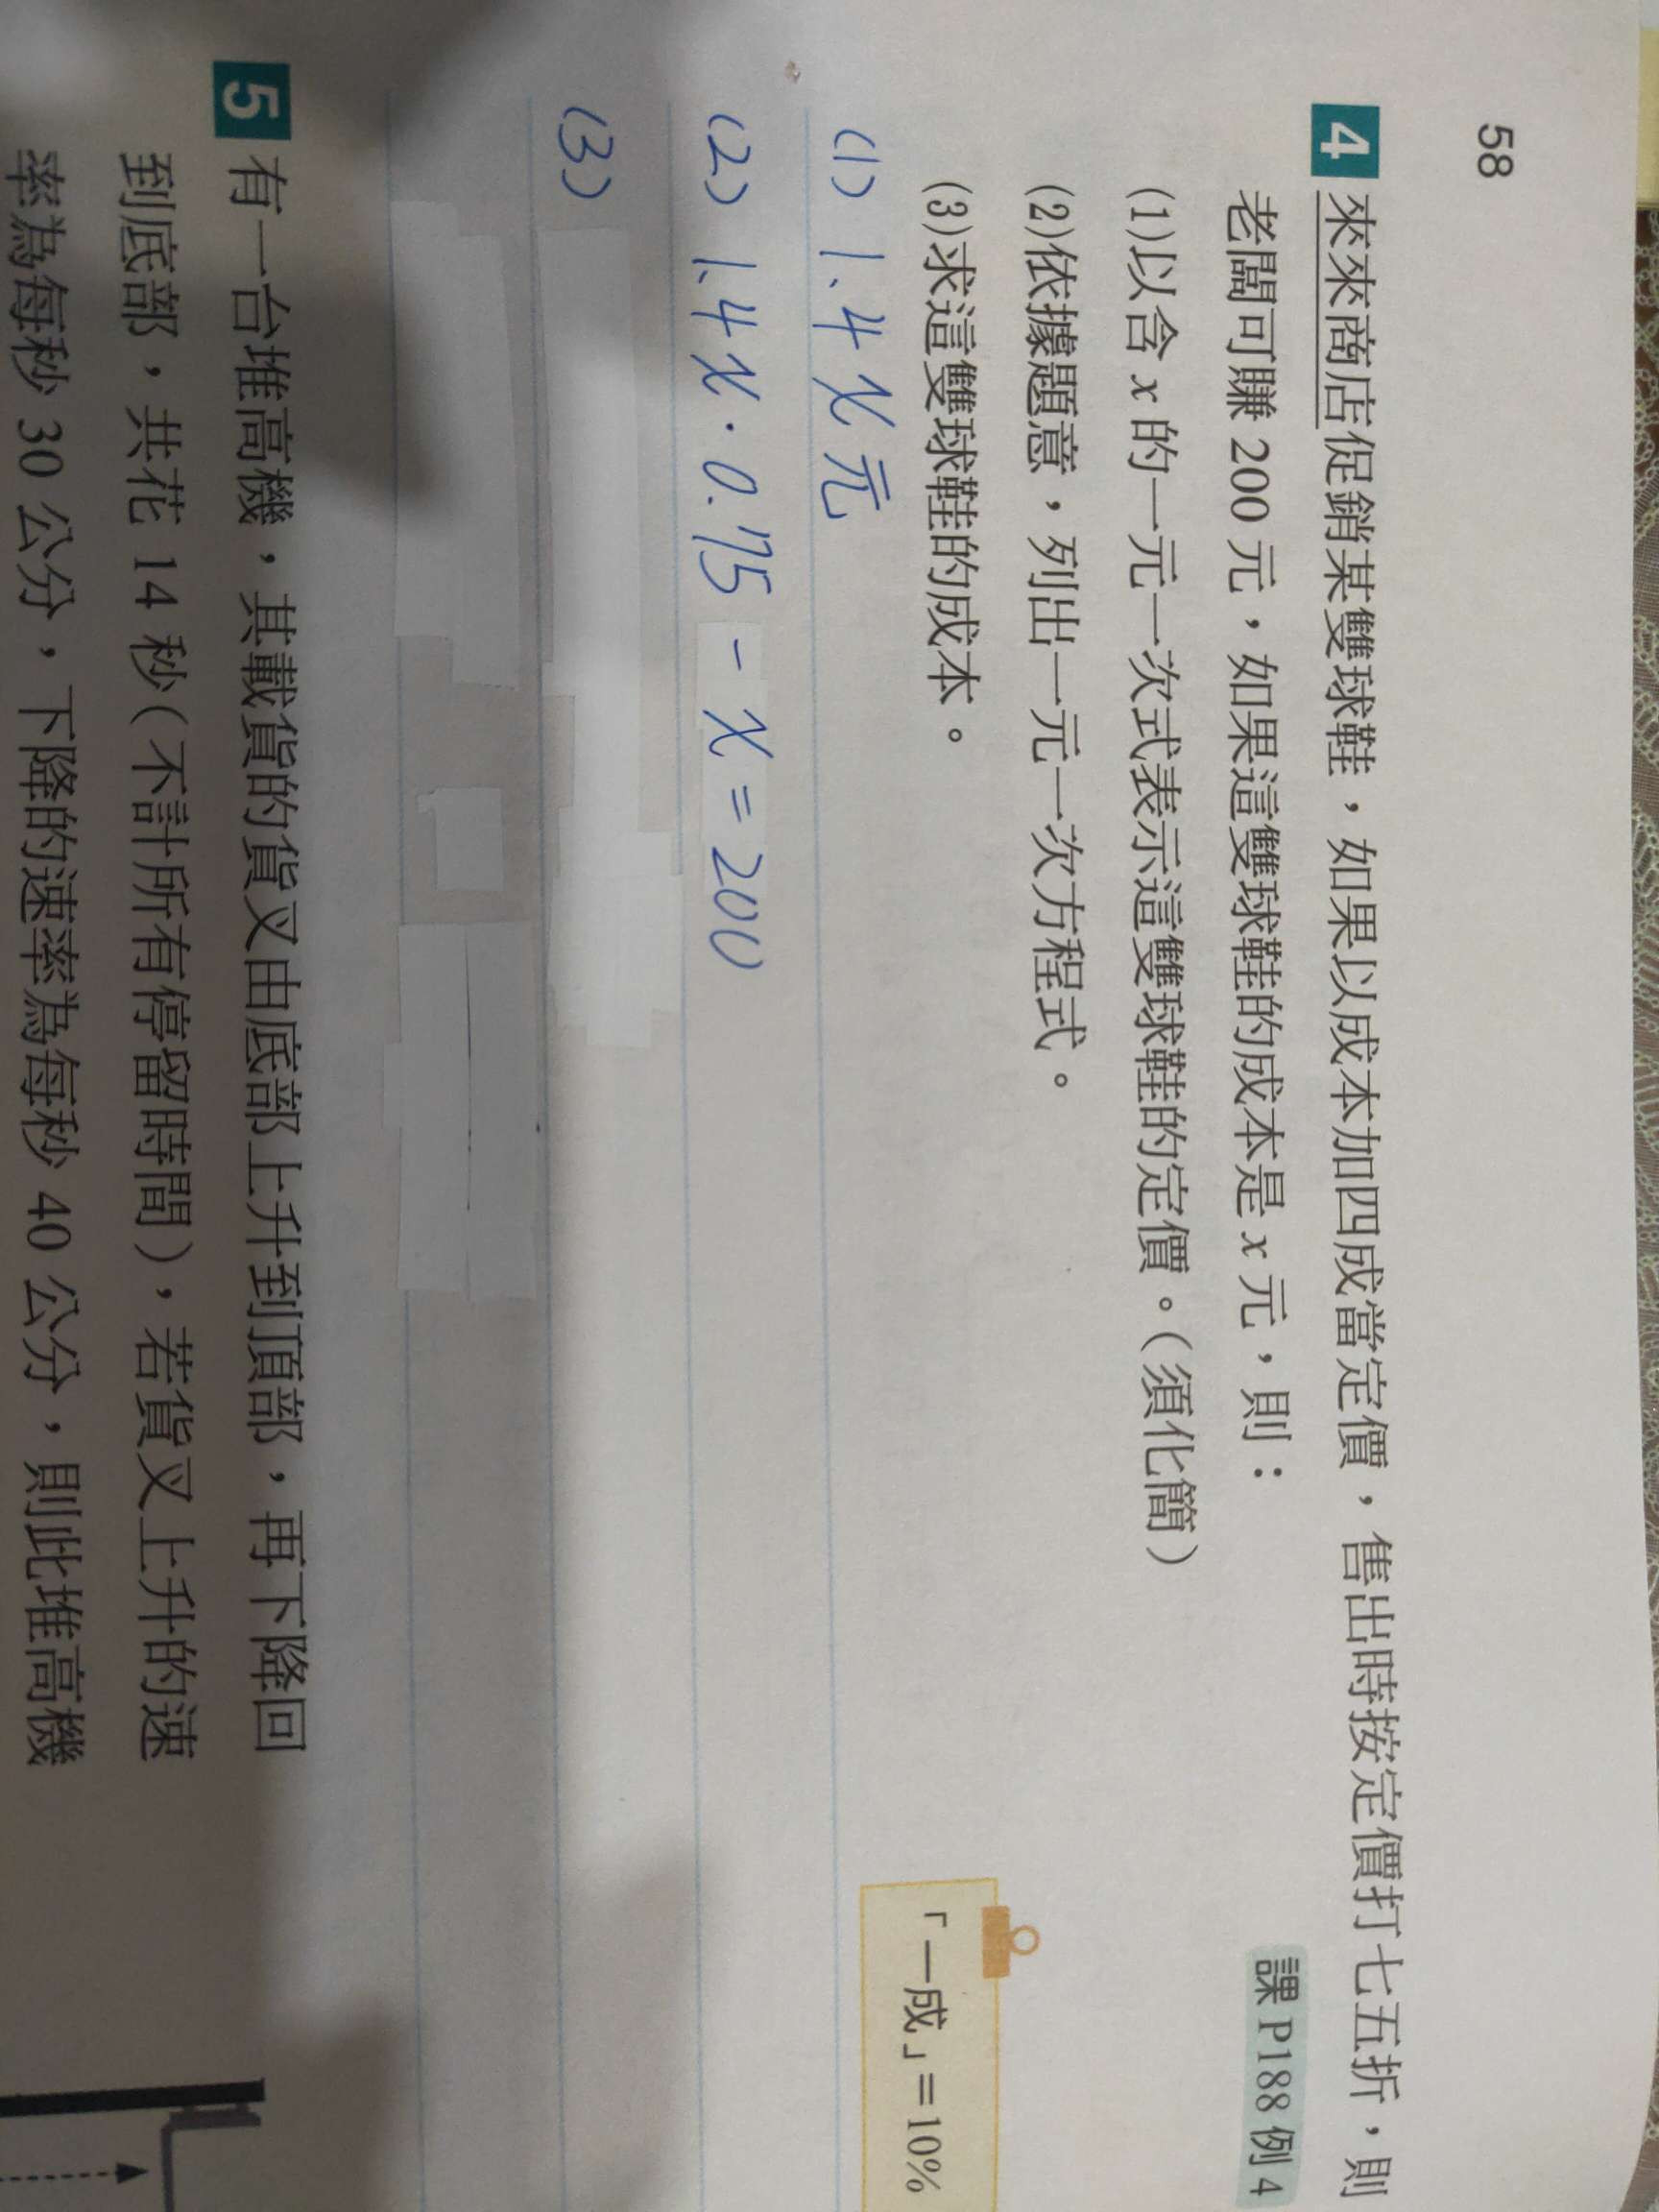 58
4 來來商店促銷某雙球鞋，如果以成本加四成當定價，售出時按定價打七五折，則
老闆可賺 200 元，如果這雙球鞋的成本是 x 元，則：
課 P188 例 4
(1)以含 x 的一元一次式表示這雙球鞋的定價。(須化簡)
(2)依據題意，列出一元一次方程式。
(3)求這雙球鞋的成本。
「一成」=10%
(1) 1.4x元
(2) 1.4x·0.75-x=200
(3)
5 有一台堆高機，其載貨的貨叉由底部上升到頂部，再下降回
到底部，共花 14 秒(不計所有停留時間)，若貨叉上升的速
率為每秒 30 公分，下降的速率為每秒 40 公分，則此堆高機